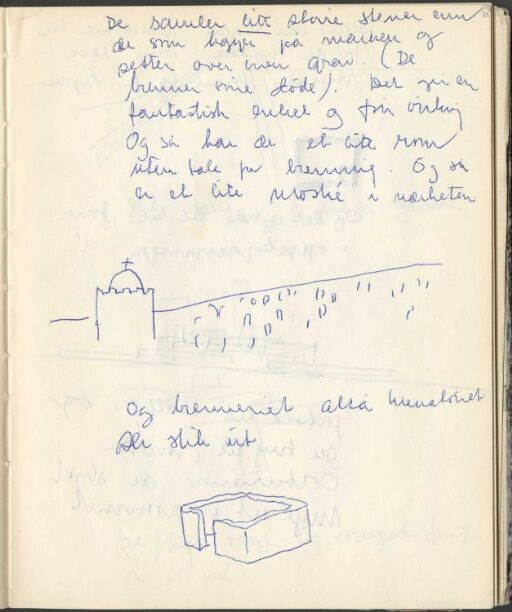 De samler litt større stener enn
de som ligger på marken og
setter over hver grav. (De
brenner sine døde). Det gir en
fantastisk enkel og fin virkning
Og så har de et lite rom
uten tak for brenning. Og så
er et lite moské i nærheten
Og brenneriet altså krematoriet
ser slik ut